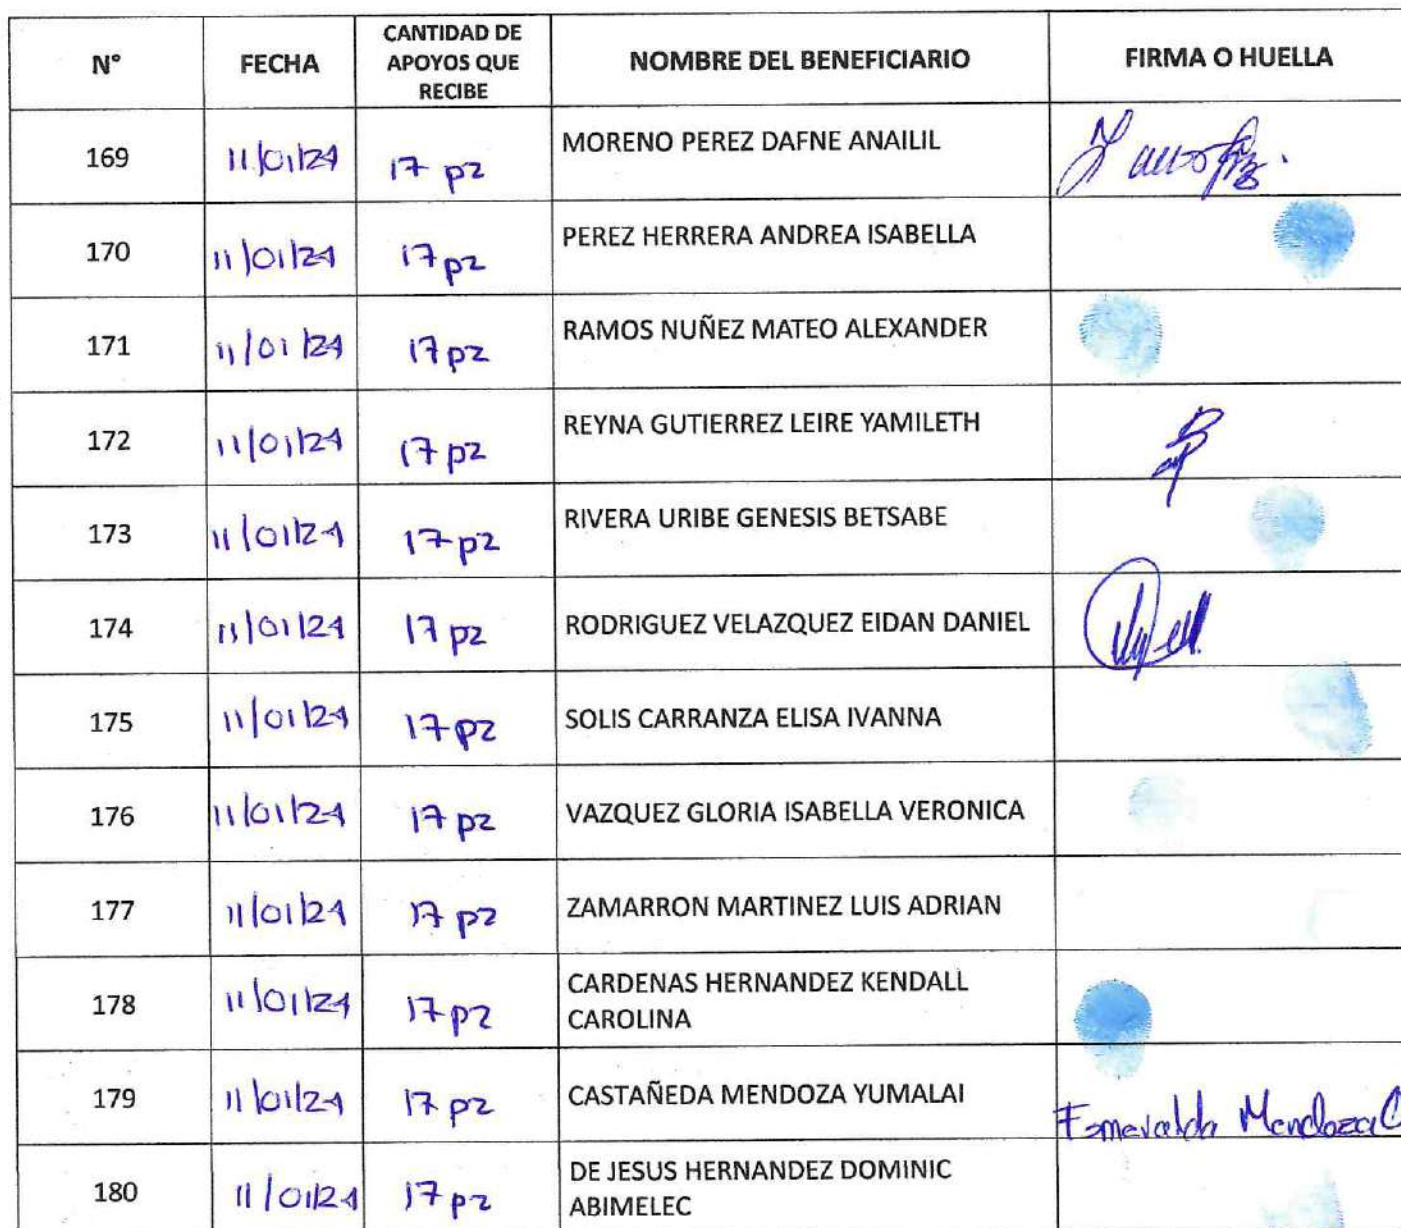 N° FECHA CANTIDAD DE APOYOS QUE RECIBE NOMBRE DEL BENEFICIARIO FIRMA O HUELLA
169 11/01/24 17 pz MORENO PEREZ DAFNE ANAILIL
170 11/01/24 17 pz PEREZ HERRERA ANDREA ISABELLA
171 11/01/24 17 pz RAMOS NUÑEZ MATEO ALEXANDER
172 11/01/24 17 pz REYNA GUTIERREZ LEIRE YAMILETH
173 11/01/24 17 pz RIVERA URIBE GENESIS BETSABE
174 11/01/24 17 pz RODRIGUEZ VELAZQUEZ EIDAN DANIEL
175 11/01/24 17 pz SOLIS CARRANZA ELISA IVANNA
176 11/01/24 17 pz VAZQUEZ GLORIA ISABELLA VERONICA
177 11/01/24 17 pz ZAMARRON MARTINEZ LUIS ADRIAN
178 11/01/24 17 pz CARDENAS HERNANDEZ KENDALL
CAROLINA
179 11/01/24 17 pz CASTAÑEDA MENDOZA YUMALAI Esmeralda Mendoza C
180 11/01/24 17 pz DE JESUS HERNANDEZ DOMINIC
ABIMELEC